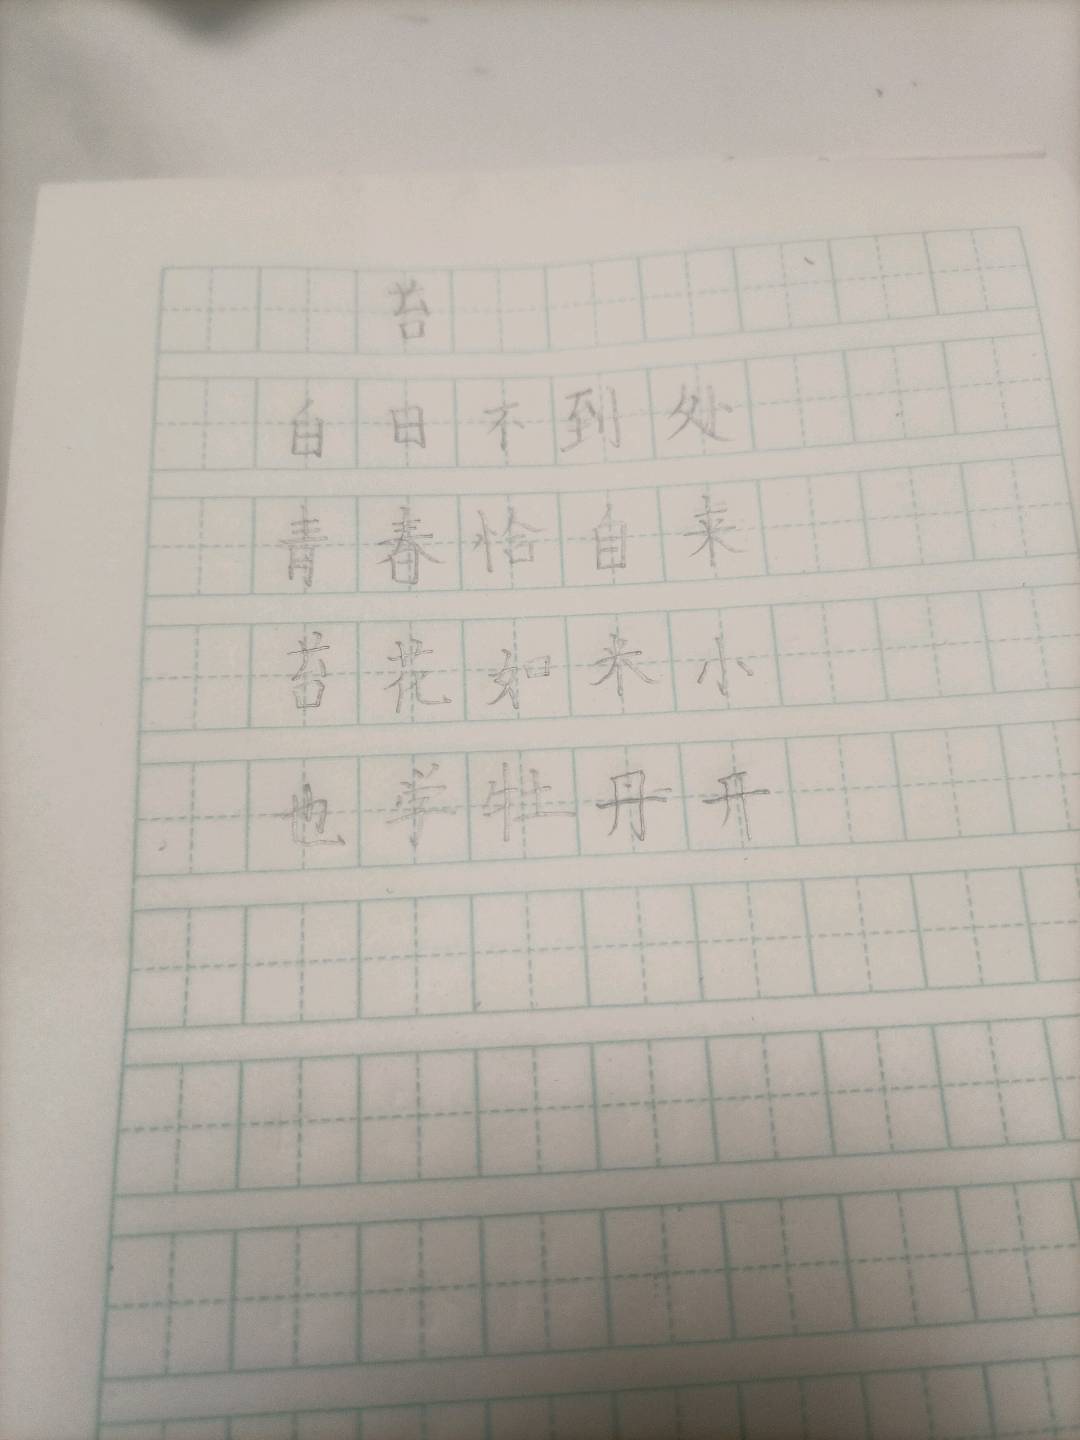 苔
白日不到处
青春恰自来
苔花如米小
也学牡丹开